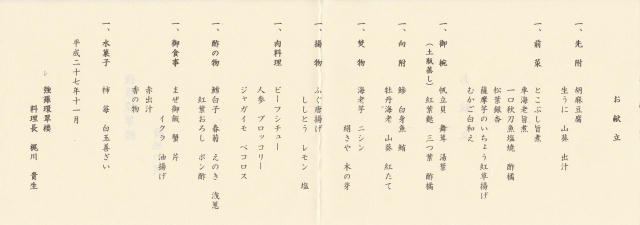 お献立
一、先附 胡麻豆腐
生うに 山葵 出汁
一、前菜 とこぶし旨煮
車海老旨煮
一口秋刀魚塩焼 酢橘
松葉銀杏
薩摩芋のいちょう紅草揚げ
むかご白和え
一、御椀 帆立貝 舞茸 湯葉
(土瓶蒸し) 紅葉麩 三つ葉 酢橘
一、向附 鯵 白身魚 鮪
牡丹海老 山葵 紅たて
一、焚物 海老芋 ニシン
絹さや 木の芽
一、揚物 ふぐ唐揚げ
ししとう レモン 塩
一、肉料理 ビーフシチュー
人参 ブロッコリー
ジャガイモ ペコロス
一、酢の物 鱈白子 春菊 えのき 浅葱
紅葉おろし ポン酢
一、御食事 まぜ御飯 蟹 芹
イクラ 油揚げ
赤出汁
香の物
一、水菓子 柿 苺 白玉善ざい
平成二十七年十一月
強羅環翠楼
料理長 梶川 貴生